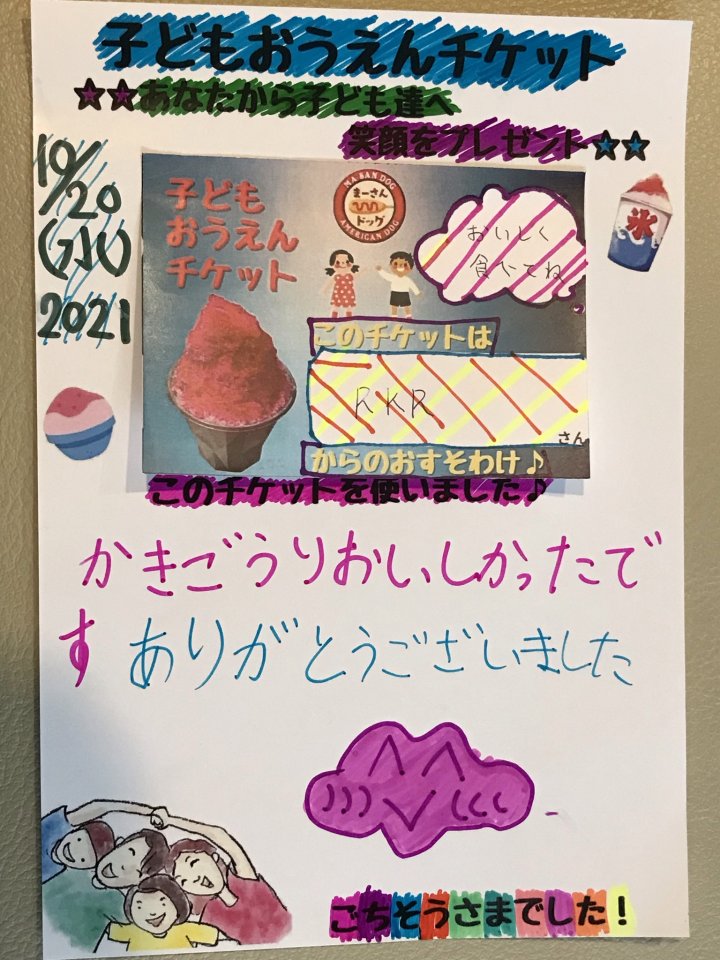 子どもおうえんチケット
☆☆あなたから子ども達へ
笑顔をプレゼント☆☆
10/20
(水)
2021
子ども
おうえん
チケット
MA BAN DOG
まーさん
ドッグ
AMERICAN DOG
おいしく
食べてね
氷
このチケットは
RKR
さん
からのおすそわけ♪
このチケットを使いました♪
かきごうりおいしかったで
す ありがとうございました
ごちそうさまでした!